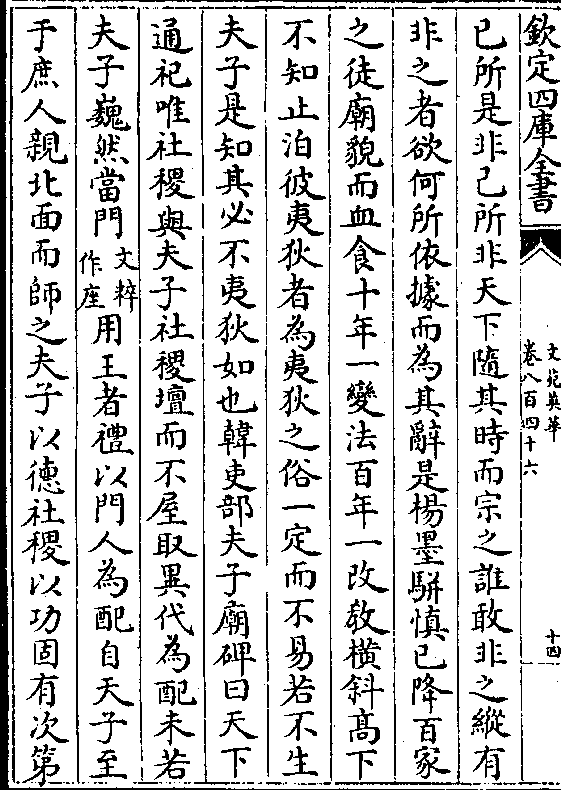 欽定四庫全書
文苑英華
卷八百四十六
十四
已所是非已所非天下隨其時而宗之誰敢非之縱有
非之者欲何所依據而為其辭是楊墨駢慎已降百家
之徒廟貌而血食十年一變法百年一改敎橫斜髙下
不知止泊彼夷狄者為夷狄之俗一定而不易若不生
夫子是知其必不夷狄如也韓吏部夫子廟碑曰天下
通祀唯社稷與夫子社稷壇而不屋取異代為配未若
夫子巍然當門文粹作座用王者禮以門人為配自天子至
于庶人親北面而師之夫子以德社稷以功固有次第